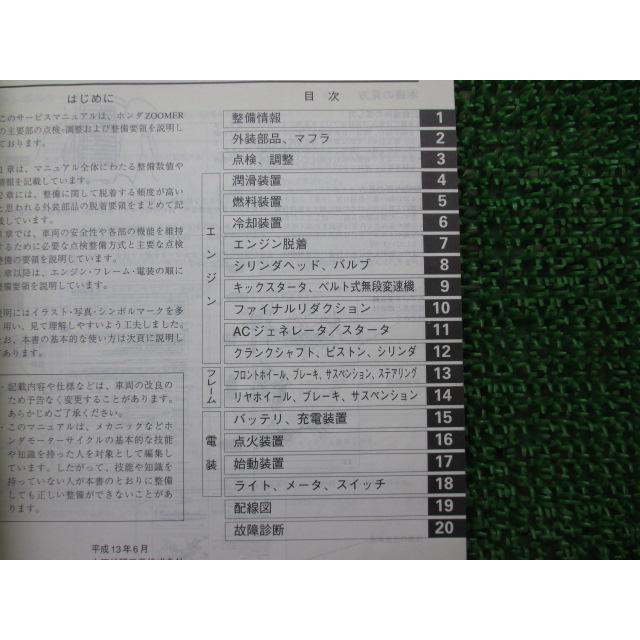 はじめに
このサービスマニュアルは、ホンダZOOMER
の主要部の点検・調整および整備要領を説明し
ております。
章は、マニュアル全体にわたる整備数値や
情報を記載しています。
章は、整備に関して脱着する頻度が高い
と思われる外装部品の脱着要領をまとめて記
載しています。
章では、車両の安全性や各部の機能を維持
するために必要な点検整備方式と主要な点検
整備の要領を説明しています。
章以降は、エンジン・フレーム・電装の順に
整備要領を説明しています。
説明にはイラスト・写真・シンボルマークを多
用い、見て理解しやすいよう工夫しました。
なお、本書の基本的な使い方は次頁に説明し
てあります。
・記載内容や仕様などは、車両の改良の
ため予告なく変更することがあります。
あらかじめご了承ください。
・このマニュアルは、メカニックなどホ
ンダモーターサイクルの基本的な技能
や知識を持った人を対象として編集し
ています。したがって、技能や知識を
持っていない人が本書のとおりに整備
しても正しい整備ができないことがあ
ります。
平成13年6月
目次
整備情報 1
外装部品、マフラ 2
点検、調整 3
エンジン
潤滑装置 4
燃料装置 5
冷却装置 6
エンジン脱着 7
シリンダヘッド、バルブ 8
キックスタータ、ベルト式無段変速機 9
ファイナルリダクション 10
ACジェネレータ/スタータ 11
クランクシャフト、ピストン、シリンダ 12
フレーム
フロントホイール、ブレーキ、サスペンション、ステアリング 13
リヤホイール、ブレーキ、サスペンション 14
電装
バッテリ、充電装置 15
点火装置 16
始動装置 17
ライト、メータ、スイッチ 18
配線図 19
故障診断 20